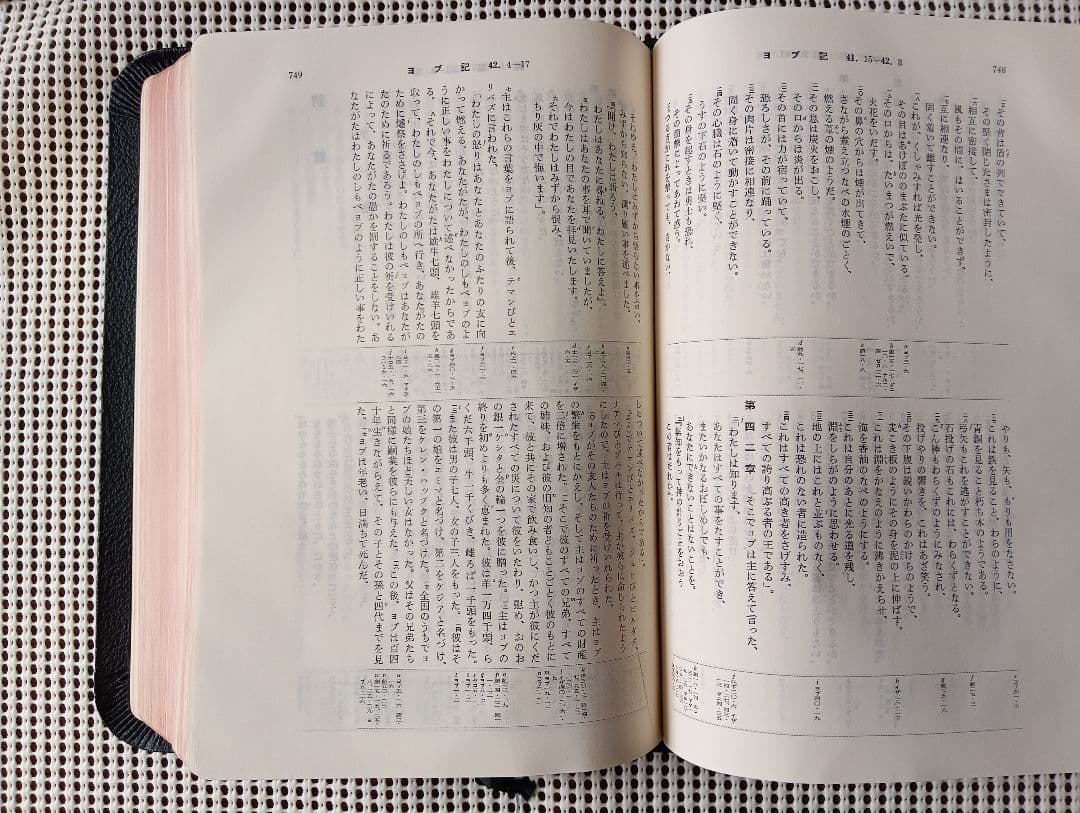 ヨブ記 41.15—42.3
748
その背は盾の列でできていて、
その堅く閉じたさまは密封したように、
相互に密接して、
風もその間に、はいることができず、
互に相連なり、
固く着いて離すことができない。
これが、くしゃみすれば光を発し、
その目はあけぼののまぶたに似ている。
その口からは、たいまつが燃えいで、
火花をいだす。
その鼻の穴からは煙が出てきて、
さながら煮え立つなべの水煙のごとく、
燃える葦の煙のようだ。
その息は炭火をおこし、
その口からは炎が出る。
その首には力が宿っていて、
恐ろしさが、その前に踊っている。
その肉片は密接に相連なり、
固く身に着いて動かすことができない。
その心臓は石のように堅く、
うすの下石のように堅い。
その身を起すときは勇士も恐れ、
その衝撃によってあわて惑う。
つるぎがこれを撃っても、きかない、
やりも、矢も、もりも用をなさない。
これは鉄を見ること、わらのように、
青銅を見ること朽ち木のようである。
弓矢もこれを逃がすことができない。
石投げの石もこれには、わらくずとなる。
こん棒もわらくずのようにみなされ、
投げやりの響きを、これはあざ笑う。
その下腹は鋭いかわらのかけらのようで、
麦こき板のようにその身を泥の上に伸ばす。
これは淵をかなえのように沸きかえらせ、
海を香油のなべのようにする。
これは自分のあとに光る道を残し、
淵をしらがのように思わせる。
地の上にはこれと並ぶものなく、
これは恐れのない者に造られた。
これはすべての高き者をさげすみ、
すべての誇り高ぶる者の王である」。
第四二章 そこでヨブは主に答えて言った、
「わたしは知ります、
あなたはすべての事をなすことができ、
またいかなるおぼしめしでも、
あなたにできないことはないことを。
『無知をもって神の計りごとをおおう
この者はだれか』。
749
ヨブ記 42.4—17
それゆえ、わたしはみずから悟らない事を言い、
みずから知らない、測り難い事を述べました。
『聞け、わたしは語ろう、
わたしはあなたに尋ねる、わたしに答えよ』。
わたしはあなたの事を耳で聞いていましたが、
今はわたしの目であなたを拝見いたします。
それでわたしはみずから恨み、
ちり灰の中で悔います」。
主はこれらの言葉をヨブに語られて後、テマンびとエ
リパズに言われた、
「わたしの怒りはあなたとあなたのふたりの友に向
かって燃える。あなたがたが、わたしのしもべヨブのよ
うに正しい事をわたしについて述べなかったからであ
る。それで今、あなたがたは雄牛七頭、雄羊七頭を
取って、わたしのしもべヨブの所へ行き、あなたがたの
ために燔祭をささげよ。わたしのしもべヨブはあなたが
たのために祈るであろう。わたしは彼の祈を受けいれる
によって、あなたがたの愚かを罰することをしない。あ
なたがたはわたしのしもべヨブのように正しい事をわた
しについて述べなかったからである」。
そこでテマンびとエリパズ、シュヒびとビルダデ、
ナアマびとゾパルは行って、主が彼らに命じられたよう
にしたので、主はヨブの祈を受けいれられた。
ヨブがその友人たちのために祈ったとき、主はヨブ
の繁栄をもとにかえし、そして主はヨブのすべての財産
を二倍に増された。そこで彼のすべての兄弟、すべて
の姉妹、および彼の旧知の者どもことごとく彼のもとに
来て、彼と共にその家で飲み食いし、かつ主が彼にくだ
されたすべての災について彼をいたわり、慰め、おのお
の銀一ケシタと金の輪一つを彼に贈った。主はヨブの
終りを初めよりも多く恵まれた。彼は羊一万四千頭、ら
くだ六千頭、牛一千くびき、雌ろば一千頭をもった。
また彼は男の子七人、女の子三人をもった。彼はそ
の第一の娘をエミマと名づけ、第二をケジアと名づけ、
第三をケレン・ハップクと名づけた。全国のうちでヨ
ブの娘たちほど美しい女はなかった。父はその兄弟たち
と同様に嗣業を彼らにも与えた。この後、ヨブは百四
十年生きながらえて、その子とその孫と四代までを見
た。ヨブは年老い、日満ちて死んだ。